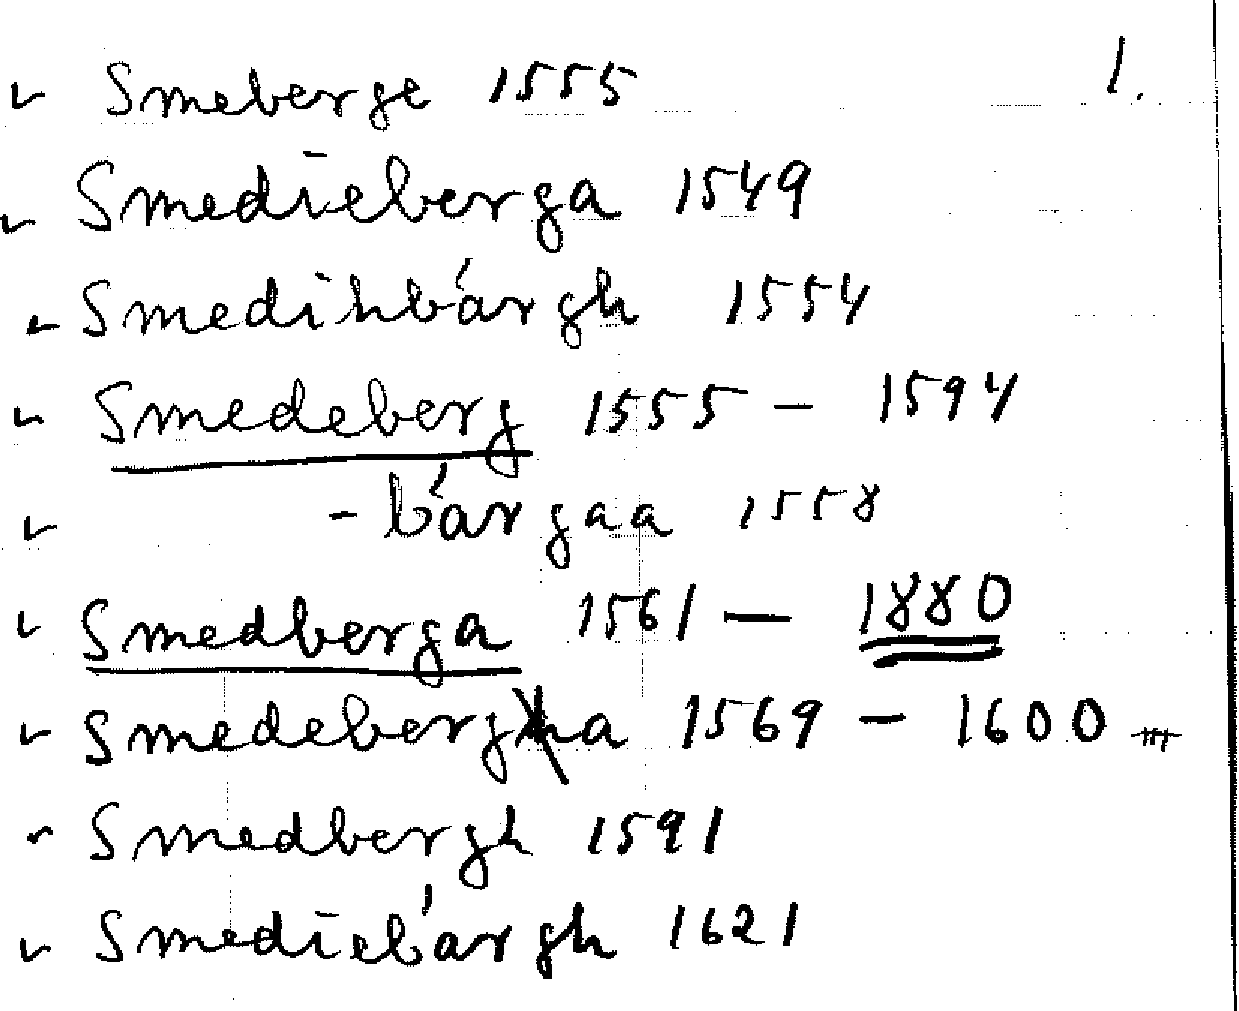 Smeberge 1555 1.
Smedieberga 1549
Smedihbárgh 1554
Smedeberg 1555 – 1594
-bárgaa 1558
Smedberga 1561 – 1880
Smedeberga 1569 – 1600
Smedbergh 1591
Smediebárgh 1621